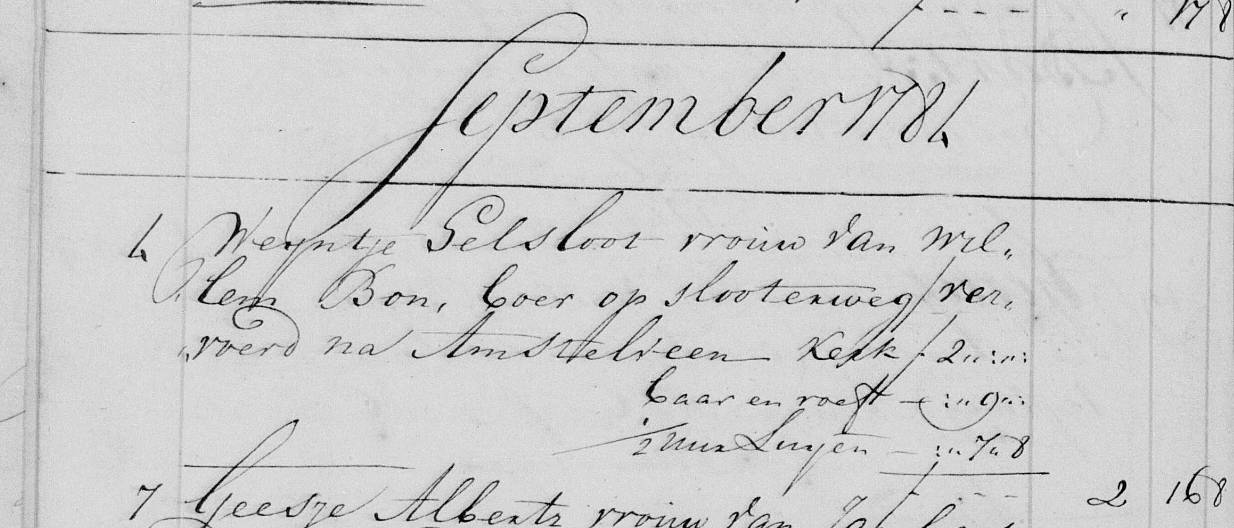 " 17 8
September 1784
4 Weyntje Pelsloot vrouw van Wil„
„lem Bon, boer op slootenweg / ver„
„voerd na Amstelveen kerk f 2„:„:
baar en roeft — :„ 9„:
½ uur Luyen — :„ 7„ 8
2 16 8
7 Geesje Albertz vrouw van